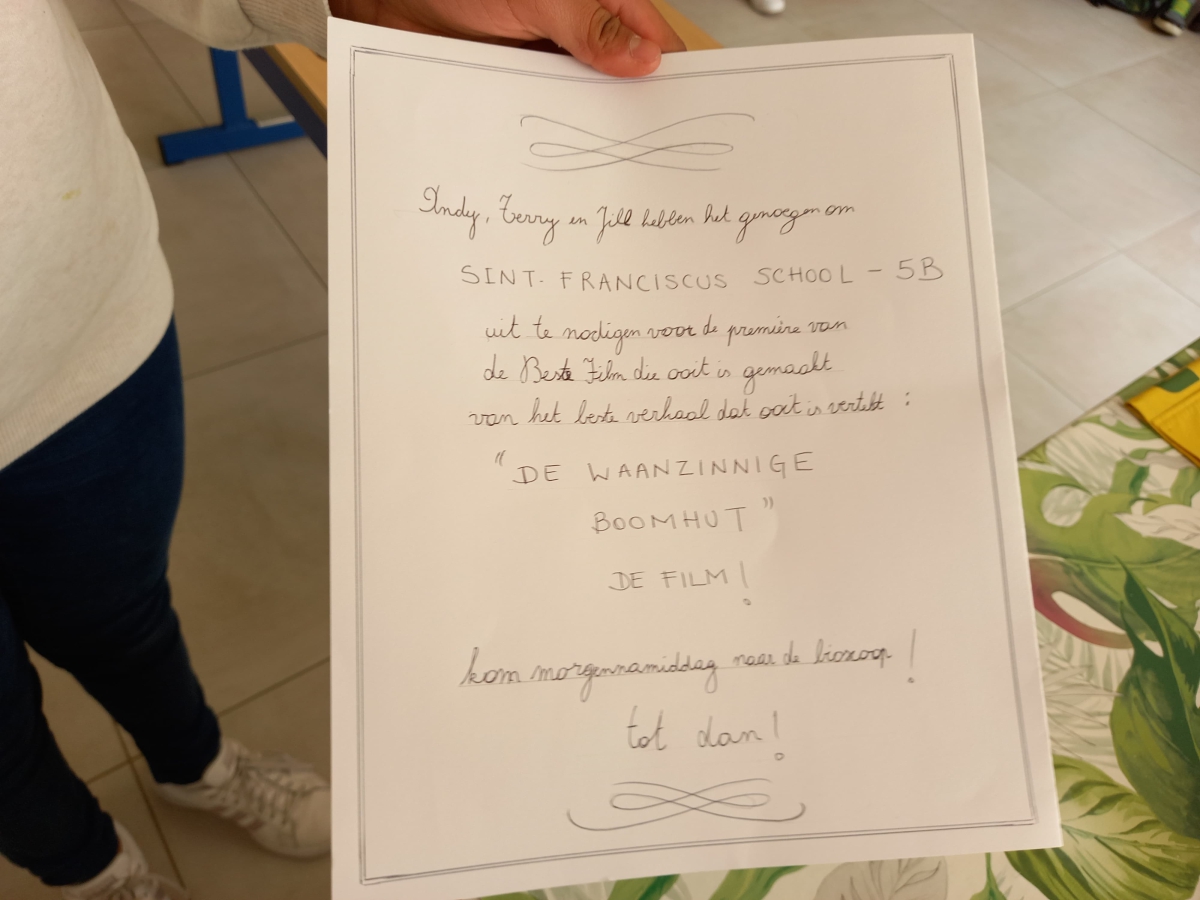 Andy, Terry en Jill hebben het genoegen om
SINT. FRANCISCUS SCHOOL - 5B
uit te nodigen voor de première van
de Beste Film die ooit is gemaakt
van het beste verhaal dat ooit is vertelt :
"DE WAANZINNIGE
BOOMHUT"
DE FILM!
kom morgennamiddag naar de bioscoop!
tot dan!